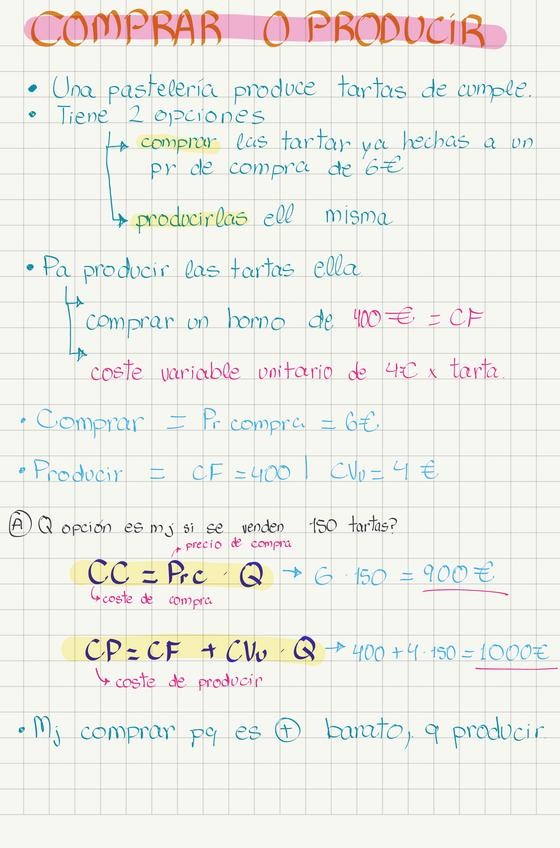 COMPRAR O PRODUCIR
• Una pastelería produce tartas de cumple.
• Tiene 2 opciones
comprar las tartar ya hechas a un
pr de compra de 6€
producirlas ell misma
• Pa producir las tartas ella
comprar un horno de 400€ = CF
coste variable unitario de 4€ x tarta.
• Comprar = Pr compra = 6€
• Producir = CF = 400 | CVu = 4 €
Ⓐ Q opción es mj si se venden 150 tartas?
precio de compra
CC = Prc · Q → 6 · 150 = 900€
coste de compra
CP = CF + CVu · Q → 400 + 4 · 150 = 1000€
coste de producir
• Mj comprar pq es ⊕ barato, q producir.